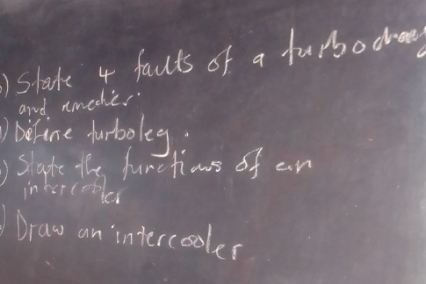 ) State 4 faults of a turbocharg
and remedies.
) Define turboleg.
) State the functions of an
intercooler
) Draw an intercooler